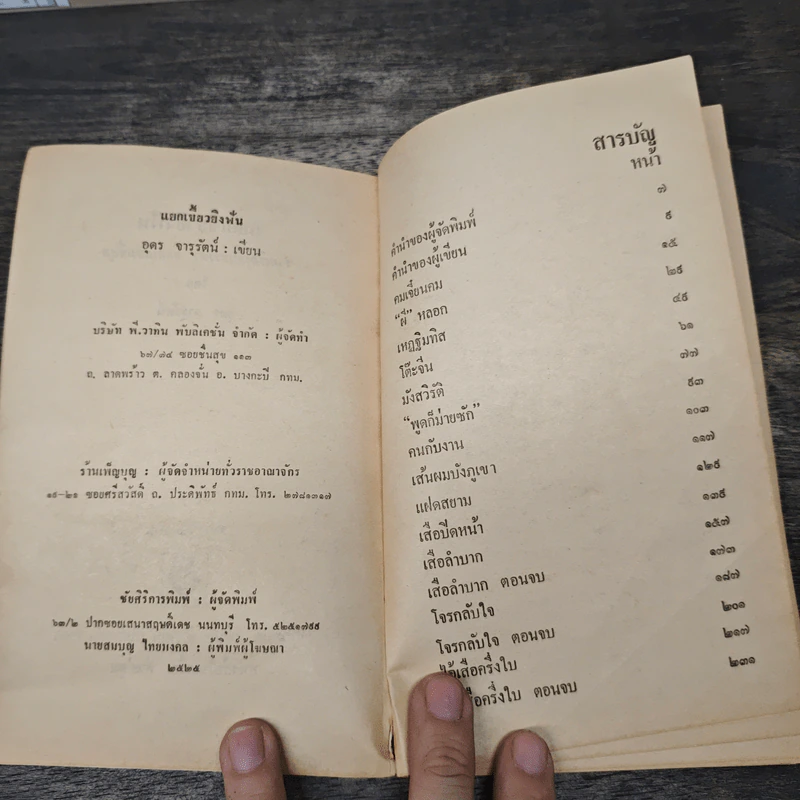 แยกเขี้ยวยิงฟัน
อุดร จารุรัตน์ : เขียน
บริษัท พี.วาทิน พับลิเคชั่น จำกัด : ผู้จัดทำ
๖๗/๗๔ ซอยชื่นสุข ๑๑๓
ถ. ลาดพร้าว ต. คลองจั่น อ. บางกะปิ กทม.
ร้านเพ็ญบุญ : ผู้จัดจำหน่ายทั่วราชอาณาจักร
๑๙-๒๑ ซอยศรีสวัสดิ์ ถ. ประดิพัทธ์ กทม. โทร. ๒๗๘๑๓๑๗
ชัยสิริการพิมพ์ : ผู้จัดพิมพ์
๖๓/๒ ปากซอยเสนาสฤษดิ์เดช นนทบุรี โทร. ๕๒๕๑๗๙๙
นายสมบุญ ไทยมงคล : ผู้พิมพ์ผู้โฆษณา
๒๕๒๕
สารบัญ
หน้า
คำนำของผู้จัดพิมพ์ ๗
คำนำของผู้เขียน ๙
คมเจี๋ยนคม ๑๕
“ผี” หลอก ๒๙
เหฏฐิมทิส ๔๙
โต๊ะจีน ๖๑
มังสวิรัติ ๗๗
“พูดก็ม่ายซัก” ๙๓
คนกับงาน ๑๐๓
เส้นผมบังภูเขา ๑๑๗
แฝดสยาม ๑๒๙
เสือปิดหน้า ๑๓๙
เสือลำบาก ๑๕๗
เสือลำบาก ตอนจบ ๑๗๓
โจรกลับใจ ๑๘๗
โจรกลับใจ ตอนจบ ๒๐๑
ไอ้เสือครึ่งใบ ๒๑๗
เสือครึ่งใบ ตอนจบ ๒๓๑